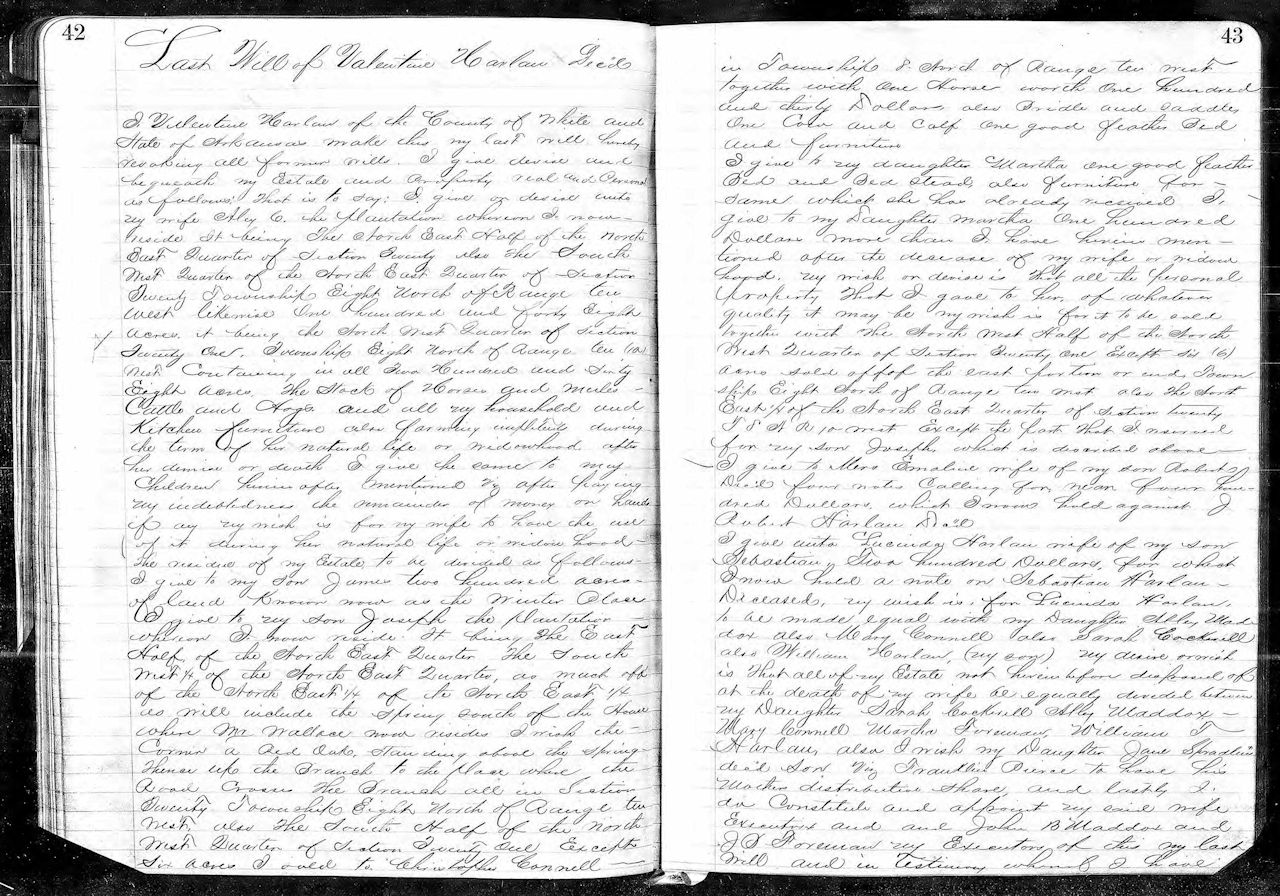 42
Last Will of Valentine Harlan Dec'd
I Valentine Harlan of the County of White and
State of Arkansas make this my last will hereby
revoking all former wills. I give devise and
bequeath my Estate and Property real and Personal
as follows: That is to say: I give or devise unto
my wife Aley C. the plantation whereon I now
reside It being the North East Half of the North
East Quarter of Section Twenty also the South
West Quarter of the North East Quarter of Section
Twenty Township Eight North of Range ten
West likewise One hundred and forty Eight
Acres it being the North West Quarter of Section
Twenty One. Township Eight North of Range ten (10)
West Containing in all Two Hundred and Sixty
Eight Acres. The Stock of Horses and Mules
Cattle and Hogs and all my household and
Kitchen furniture also farming implements during
the term of her natural life or widowhood after
her demise or death I give the same to my
Children herein after mentioned viz after paying
my indebtedness the remainder of money on hand
if any my wish is for my wife to have the use
of it during her natural life or widow hood
the residue of my Estate to be divided as follows
I give to my son James two hundred acres
of land Known now as the Winter Place
I give to my son Joseph the plantation
whereon I now reside. It being the East
Half of the North East Quarter The South
West 1/4 of the North East Quarter, as much off
of the North East 1/4 of the North East 1/4
as will include the Spring south of the House
where Mr Wallace now resides I wish the
Corner a Red Oak standing above the Spring
thence up the Branch to the place where the
Road Crosses the Branch all in Section
Twenty Township Eight North of Range ten
West, also the South Half of the North
West Quarter of Section Twenty One Except
Six acres I sold to Christopher Connell
43
in Township 8 North of Range ten west
together with One Horse worth One hundred
and thirty Dollars also Bridle and saddle,
One Cow and Calf One good feather Bed
and furniture
I give to my daughter Martha one good feather
Bed and Bed Stead, also furniture for
same which she has already received I
give to my Daughter Martha One hundred
Dollars more than I have herein men-
tioned after the decease of my wife or widow
hood. My wish or devise is that all the personal
property that I gave to her, of whatever
quality it may be my wish is for it to be sold
together with the North West Half of the North
West Quarter of Section Twenty one Except six (6)
acres sold off of the east portion or end, Town
ship Eight North of Range ten west also the
East 1/4 of the North East Quarter of Section twenty
T 8 N R 10 west Except the part that I reserved
for my son Joseph, what is described above
I give to Mrs Emaline wife of my son Robert J
Dec'd four notes Calling for near four hun-
dred Dollars, what I now hold against J
Robert Harlan Dec'd
I give unto Lucinda Harlan wife of my son
Sebastian Two hundred Dollars, for what
I now hold a note on Sebastian Harlan
Deceased, my wish is for Lucinda Harlan.
to be made equal with my Daughter Abley Mad-
dox also Mary Connell also Sarah Cockrell
also William Harlan, (my son) my desire or wish
is that all of my Estate not herein before disposed of
at the death of my wife be equally divided between
my Daughter Sarah Cockrell Abley Maddox
Mary Connell Martha Foreman, William T
Harlan, also I wish my Daughter Jane Spradlin
dec'd son viz Franklin Pierce to have his
Mothers distributive share, and lastly I
do Constitute and appoint my said wife
Executrix and and John B Maddox and
J D Foreman my Executors of this my last
Will and in Testimony whereof I have